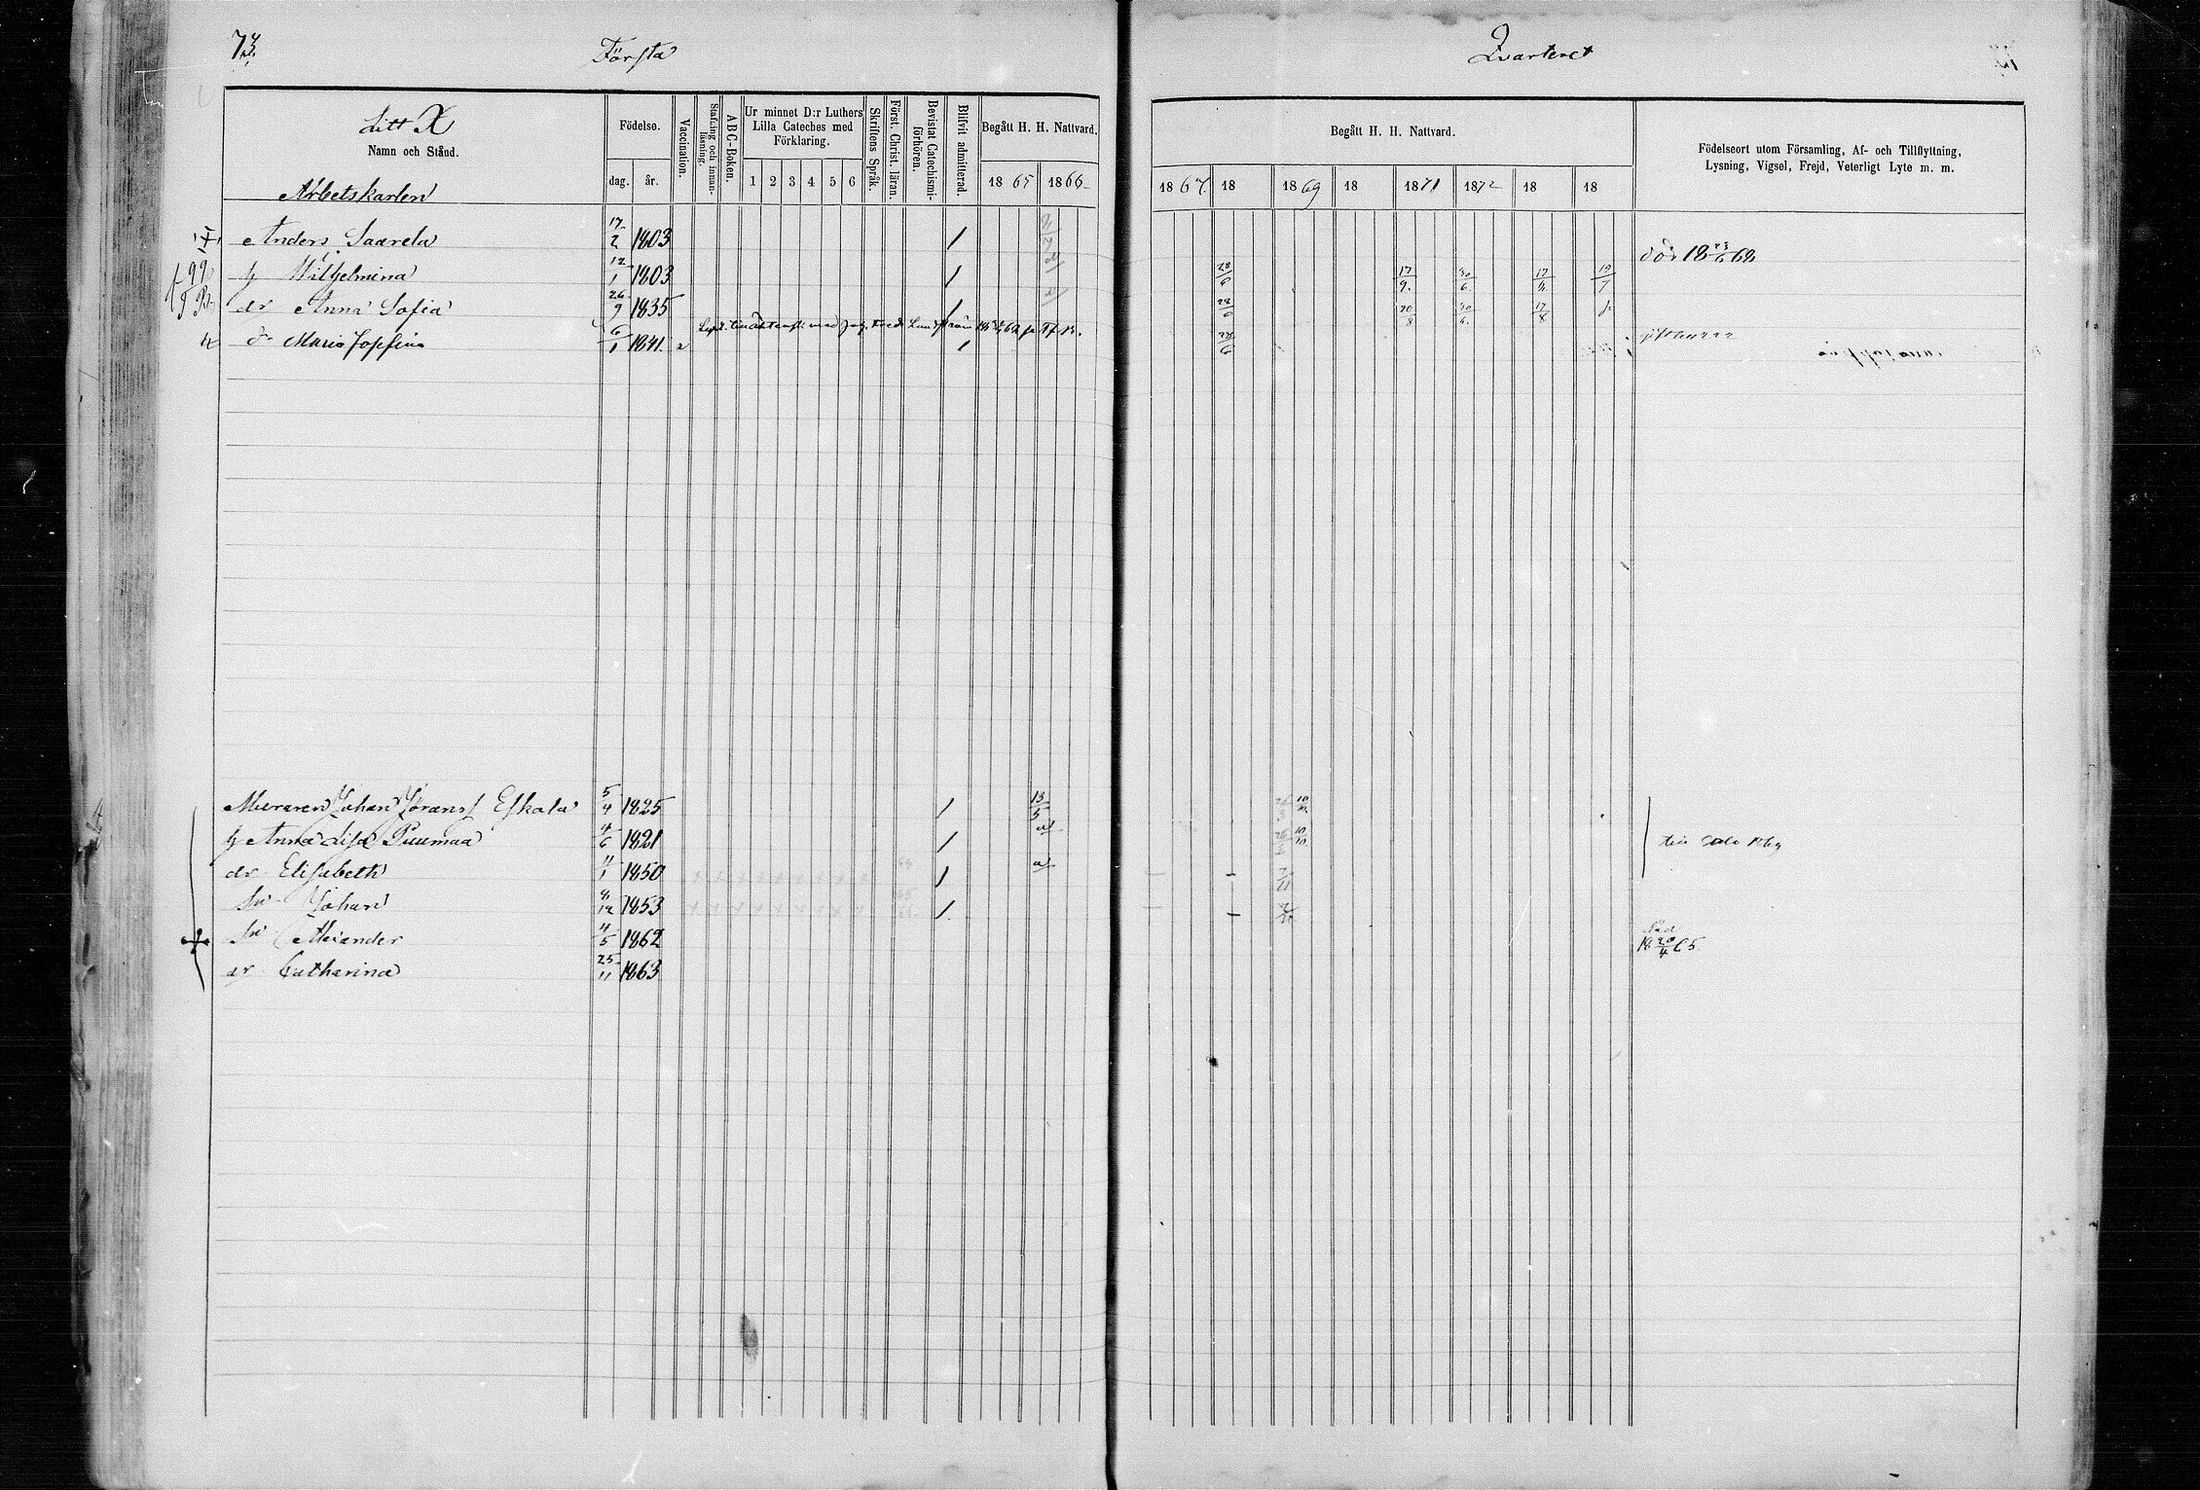 73.
Första
Qvarteret
Litt X
Namn och Stånd.
Födelse.
dag.
år.
Vaccination.
Stafning och innanläsning.
ABC-Boken.
Ur minnet D:r Luthers Lilla Cateches med Förklaring.
1 2 3 4 5 6
Skriftens Språk.
Först. Christ. läran.
Bevistat Catechismiförhören.
Blifvit admitterad.
Begått H. H. Nattvard.
1865 1866
Begått H. H. Nattvard.
1867 18 1869 18 1871 1872 18 18
Födelseort utom Församling, Af- och Tillflyttning,
Lysning, Vigsel, Frejd, Veterligt Lyte m. m.
Arbetskarlen
Anders Saarela 17/2 1803 död 18 23/6 68
h Wilhelmina 12/1 1803 28/6 17/9 30/6
dr Anna Sofia 26/9 1835 28/6 20/8 30/6 17/8
dr Maria Josefina 6/1 1841
Muraren Johan Göransf Eskola 5/4 1825 13/5
h Anna Lisa Puumaa 4/6 1821 10/10
dr Elisabeth 11/1 1850
Sn Johan 1853
Sn Alexander 11/5 1862 död 18 20/4 65
dr Catharina 25/11 1863